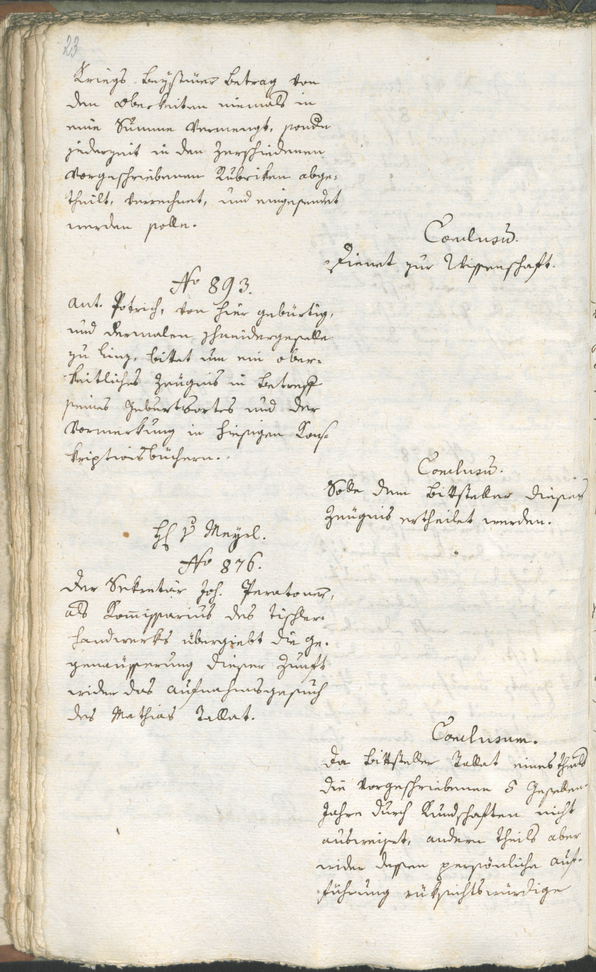 23
Kriegs-Beysteuer Betrag von
den Oberkeiten niemals in
eine Summe vermengt, sonde
jederzeit in den Zerschiedenen
vorgeschriebenen Rubriken abge-
theilt, verrechnet, und eingesendet
werden solle.
Conclusũ.
Dienet zur Wissenschaft.
No 893.
Ant. Potrich, von hier gebürtig,
und dermalen Schneidergeselle
zu Linz, bitet um ein ober-
keitliches Zeugnis in Betreff
seines Geburtsortes und der
Vormerkung in hiesigen Kons-
kriptionsbüchern.
Conclusũ.
Solle dem Bittsteller dieses
Zeugnis ertheilet werden.
Meysl.
No 876.
Der Sekretär Joh.
als Kom̃issarius des Tischler-
handwerks übergiebt die Ge-
genäusserung dieser Zunft
wider das Aufnahmsgesuch
des Mathias Tallat.
Conclusum.
Da Bittsteller Tallat eines theils
die vorgeschriebenen 6 Gesellen-
Jahre durch Kundschaften nicht
ausweiset, andern theils aber
wider dessen persönliche Auf-
führung rüksichtswürdige